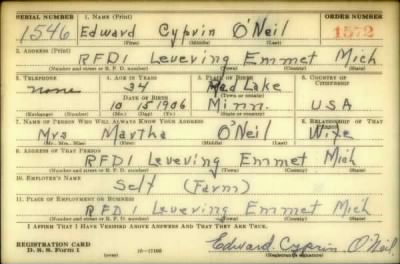 SERIAL NUMBER 1. NAME (Print) ORDER NUMBER
1546 Edward Cyprin O'Neil 1572
(First) (Middle) (Last)
2. ADDRESS (Print)
RFD1 Leveving Emmet Mich
(Number and street or R. F. D. number) (Town) (County) (State)
3. TELEPHONE 4. AGE IN YEARS 5. PLACE OF BIRTH 6. COUNTRY OF CITIZENSHIP
none 34 Red Lake
DATE OF BIRTH (Town or county)
10 15 1906 Minn. USA
(Mo.) (Day) (Yr.) (State or country)
7. NAME OF PERSON WHO WILL ALWAYS KNOW YOUR ADDRESS 8. RELATIONSHIP OF THAT PERSON
Mrs Martha O'Neil Wife
(Mr., Mrs., Miss) (First) (Middle) (Last)
9. ADDRESS OF THAT PERSON
RFD1 Leveving Emmet Mich
(Number and street or R. F. D. number) (Town) (County) (State)
10. EMPLOYER'S NAME
Self (Farm)
11. PLACE OF EMPLOYMENT OR BUSINESS
RFD1 Leveving Emmet Mich
(Number and street or R. F. D. number) (Town) (County) (State)
I AFFIRM THAT I HAVE VERIFIED ABOVE ANSWERS AND THAT THEY ARE TRUE.
REGISTRATION CARD
D. S. S. Form 1 (over) 16—17105 Edward Cyprin O'Neil